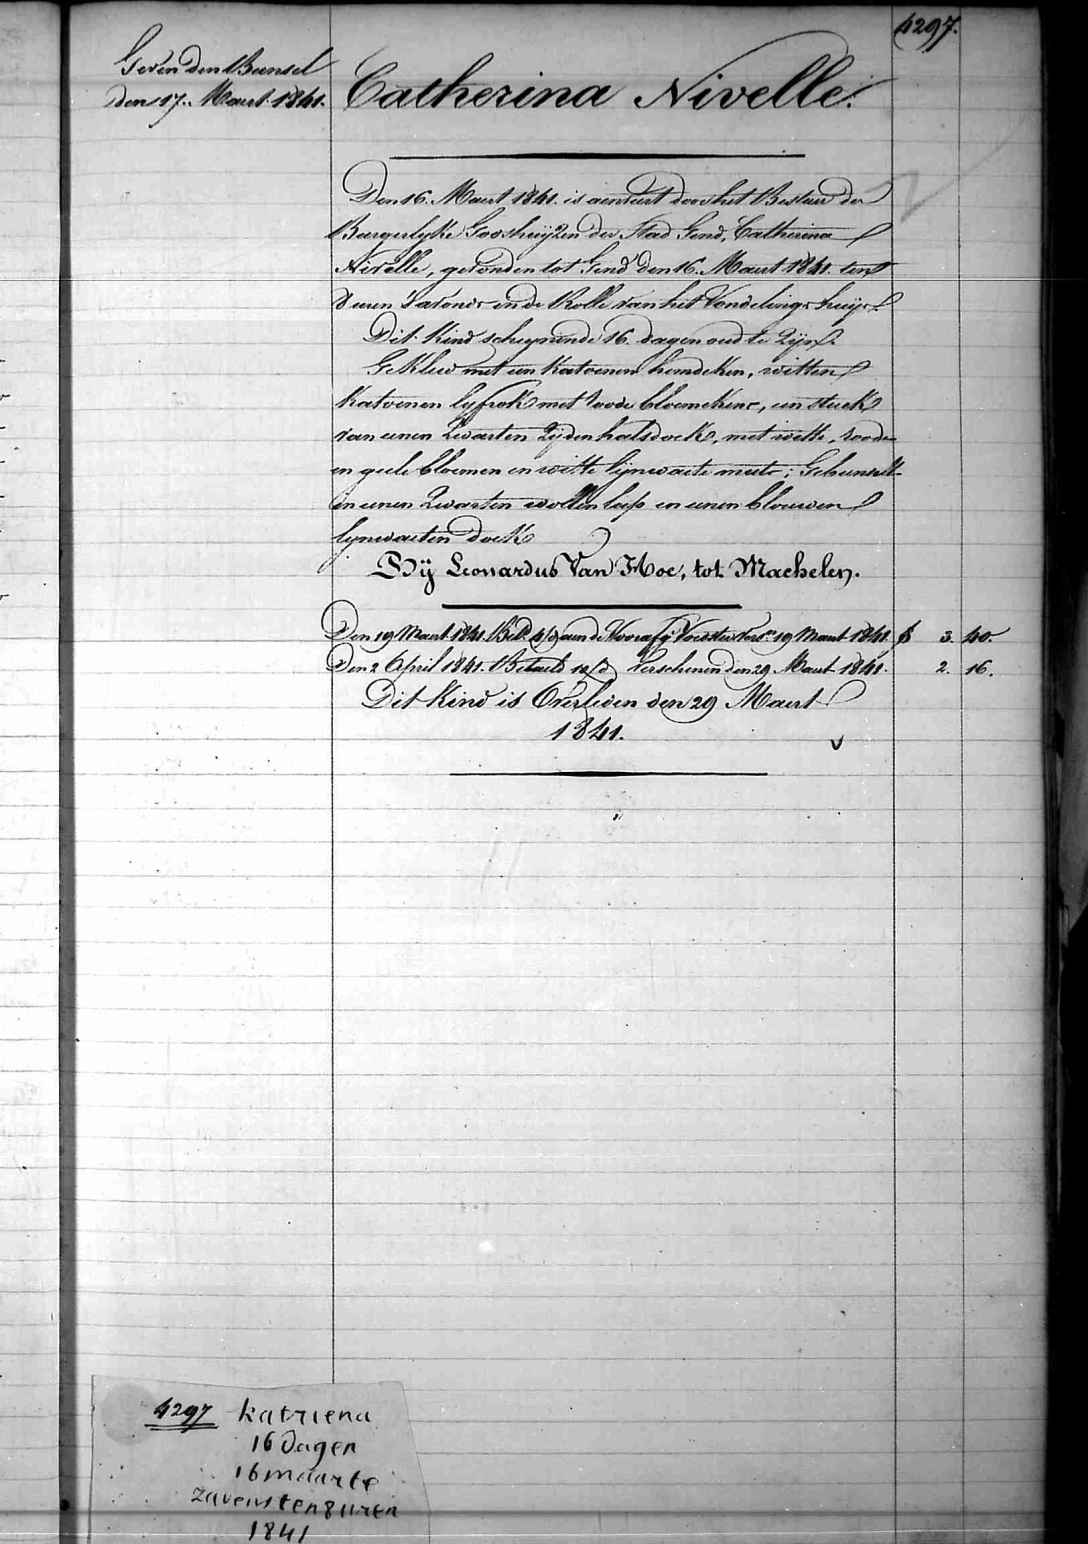 4297.
Geven den Bunsel
den 17. Maert 1841.
Catherina Nivelle.
Den 16. Maert 1841. is aenveirt door het Bestuer der
Burgerlyke Godshuijzen der Stad Gend, Catherina
Nivelle, gevonden tot Gend den 16. Maert 1841. ten
8 uren 's avonds in de Rolle van het Vondelingshuijs.
Dit Kind scheynende 16. dagen oud te Zijn.
Gekleed met een katoenen hemdeken, witten
katoenen lyfrok met roode bloemekens, een stuk
van eenen Zwarten Zijden halsdoek, met witte, roode
en geele bloemen en witte lynwaete muts; Gebunselt
in eenen Zwarten wollen lap en eenen blauwen
lynwaeten doek
Bij Leonardus Van Hoe, tot Machelen.
Den 19 Maert 1841. 4/d aen de Voorafg. Voedster 19 Maert 1841. 3. 40.
Den 2 April 1841. Betaeld Verschenen den 29 Maert 1841. 2. 16.
Dit Kind is Overleden den 29 Maert
1841.
4297 katriena
16 Dagen
16 maarte
zavensten 8 uren
1841